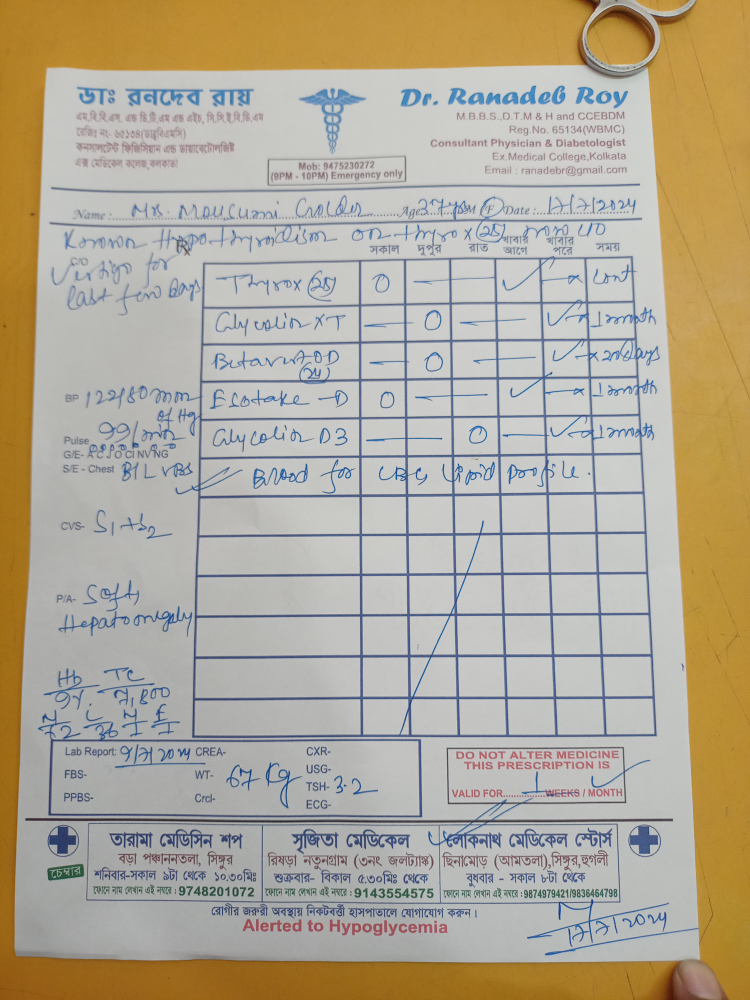 ডাঃ রনদেব রায়
এম.বি.বি.এস. এন্ড ডি.টি.এম এন্ড এইচ, সি.সি.ই.বি.ডি.এম
রেজিঃ নং- ৬৫১৩৪(ডাব্লুবিএমসি)
কনসালটেন্ট ফিজিসিয়ান এন্ড ডায়াবেটোলজিষ্ট
এক্স মেডিকেল কলেজ,কলকাতা
Mob: 9475230272
(9PM - 10PM) Emergency only
Dr. Ranadeb Roy
M.B.B.S.,D.T.M & H and CCEBDM
Reg.No. 65134(WBMC)
Consultant Physician & Diabetologist
Ex.Medical College,Kolkata
Email : ranadebr@gmail.com
Name: Mrs. Mousumi Age 37 yrs M F Date: 17/7/2024
Known Hypothyroidism on Thyrox (25)
C/O
Vertigo for
last few days
Rx
সকাল দুপুর রাত খাবার আগে খাবার পরে সময়
Thyrox (25) O — ✓ x Cont
Glycolin XT — O — ✓ x 1 month
OD (24) — O — ✓ x 20 days
D O — ✓ x 1 month
Glycolin D3 — O — ✓ x 1 month
Blood for CBC, Lipid profile.
BP 122/80 mm of Hg
Pulse 99/min
G/E- A C J O Cl NV NG
S/E - Chest B/L VBS
CVS- S1 + S2
P/A- Soft,
Hepatomegaly
Hb TC
9%. 7,800
N L M E
62 36 1 1
Lab Report: 9/7/2024 CREA- CXR-
FBS- WT- 67 Kg USG-
TSH- 3.2
PPBS- Crcl- ECG-
DO NOT ALTER MEDICINE
THIS PRESCRIPTION IS
VALID FOR 1 WEEKS / MONTH
চেম্বার
তারামা মেডিসিন শপ
বড়া পঞ্চাননতলা, সিঙ্গুর
শনিবার-সকাল ৯টা থেকে ১০.৩০মিঃ
ফোনে নাম লেখান এই নম্বরে : 9748201072
সৃজিতা মেডিকেল
রিষড়া নতুনগ্রাম (৩নং জলট্যাঙ্ক)
শুক্রবার- বিকাল ৫.৩০মিঃ থেকে
ফোনে নাম লেখান এই নম্বরে : 9143554575
লোকনাথ মেডিকেল স্টোর্স
ছিনামোড় (আমতলা),সিঙ্গুর,হুগলী
বুধবার - সকাল ৮টা থেকে
ফোনে নাম লেখান এই নম্বরে : 9874979421/9836464798
রোগীর জরুরী অবস্থায় নিকটবর্ত্তী হাসপাতালে যোগাযোগ করুন।
Alerted to Hypoglycemia
17/7/2024